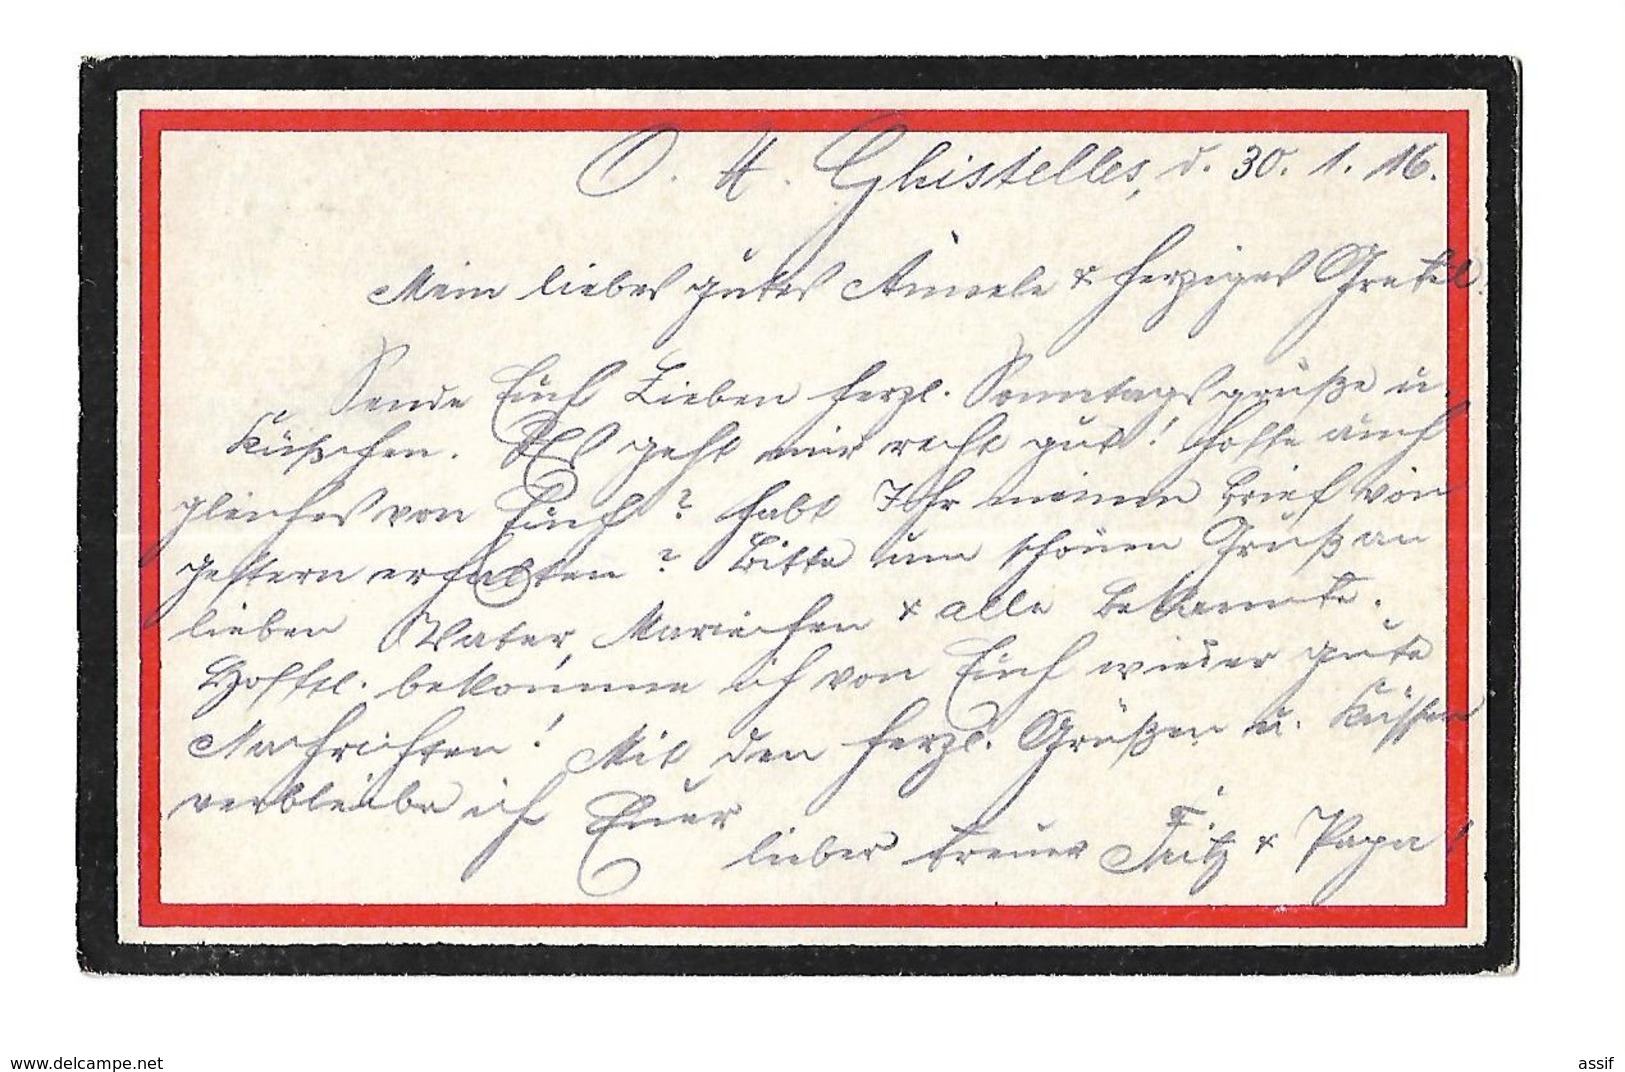 O. H. Ghistelles, d. 30. 1. 16.
Mein liebes gutes & herziges Gretel!
Sende Euch Lieben herzl. Sonntagsgrüße u.
Küßchen. Es geht mir recht gut! Hoffe auch
gleiches von Euch? Habt Ihr meinen Brief von
gestern erhalten? Bitte um schönen Gruß an
lieben Vater, Mariechen & alle Bekannte.
Hofftl. bekomme ich von Euch wieder gute
Nachrichten! Mit den herzl. Grüßen u. Küssen
verbleibe ich Euer
lieber treuer Fritz & Papa!
www.delcampe.net
assif